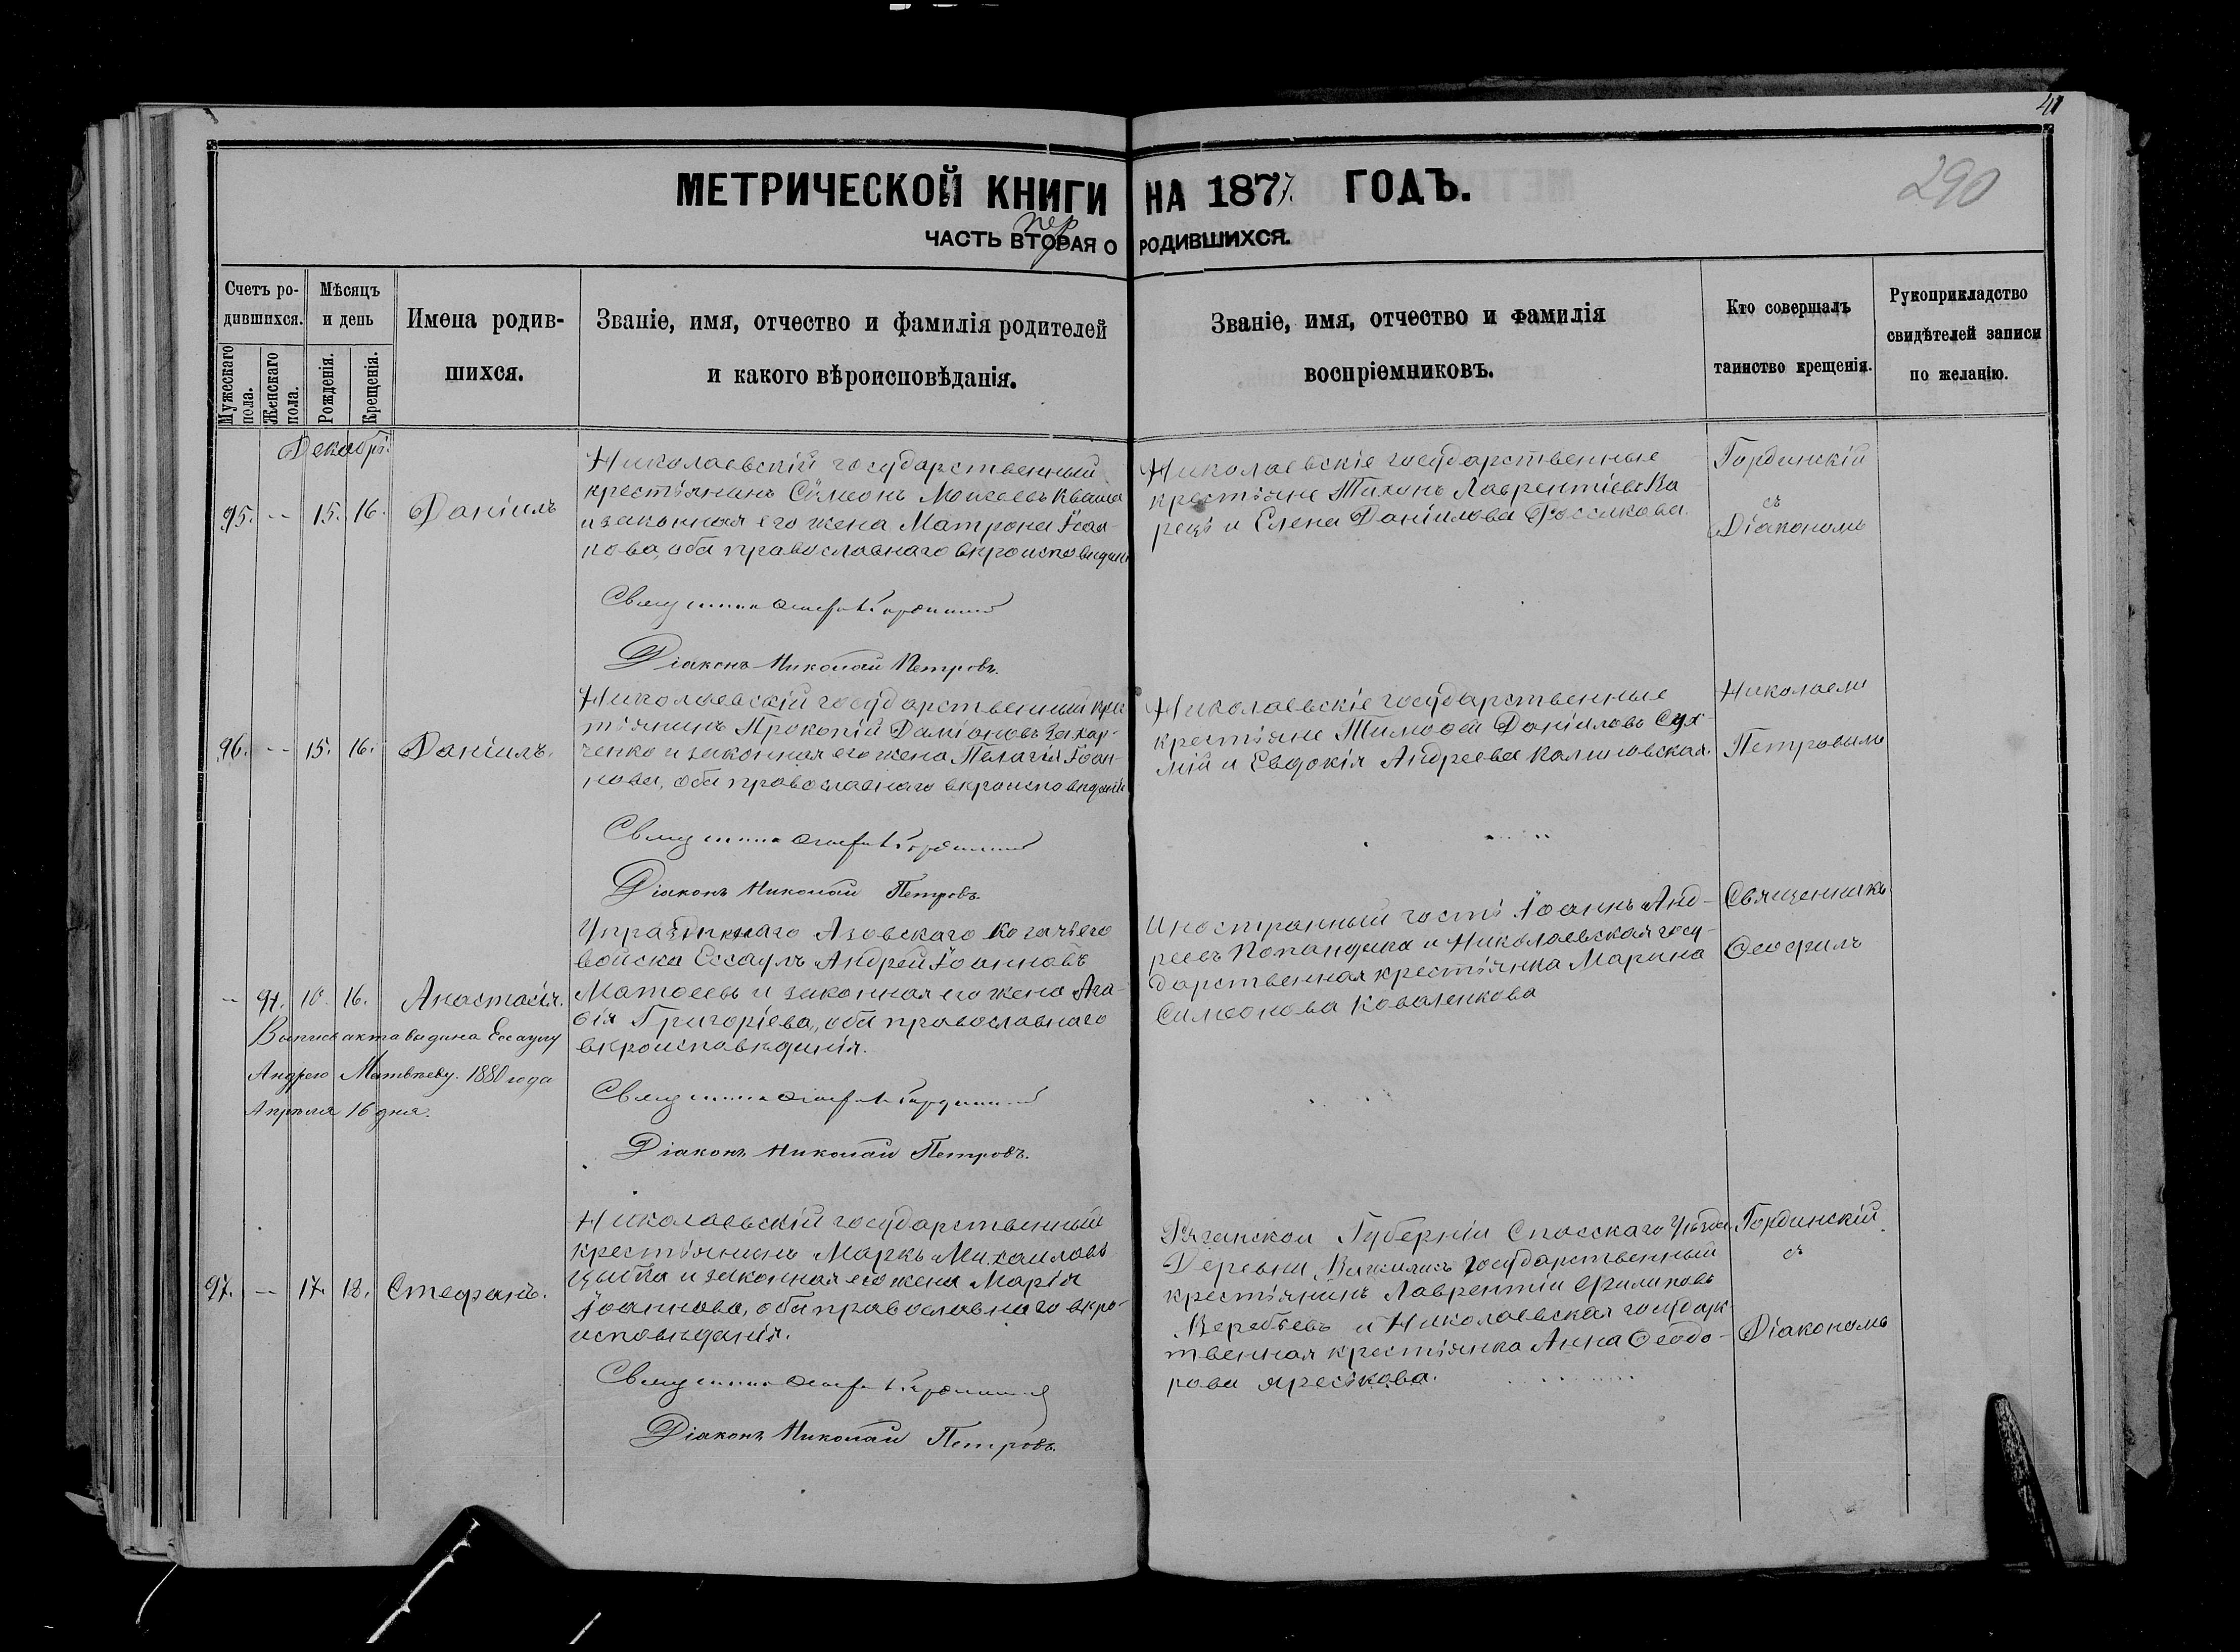 41
290
МЕТРИЧЕСКОЙ КНИГИ НА 1877. ГОДЪ.
пер
ЧАСТЬ ВТОРАЯ О РОДИВШИХСЯ.
Счетъ ро-
дившихся.
Мужескаго пола.
Женскаго пола.
Мѣсяцъ
и день
Рожденія.
Крещенія.
Имена родив-
шихся.
Званіе, имя, отчество и фамилія родителей
и какого вѣроисповѣданія.
Званіе, имя, отчество и фамилія
воспріемниковъ.
Кто совершалъ
таинство крещенія.
Рукоприкладство
свидѣтелей записи
по желанію.
Декабрь.
95. -- 15. 16. Даніилъ
Николаевскій государственный
крестьянинъ Сѵмеонъ Моисеевъ Кваша
и законная его жена Матрона Іоан-
нова, оба православнаго вѣроисповѣдані
Діаконъ Николай Петровъ.
Николаевскіе государственные
крестьяне Тихонъ Лаврентіевъ Ка
рецъ и Елена Даніилова
Гординскій
съ
Діакономъ
96. -- 15. 16. Даніилъ.
Николаевскій государственный крес
тьянинъ Прокопій Даміановъ Захар-
ченко и законная его жена Пелагія Іоан-
нова, оба православнаго вѣроисповѣданій
Діаконъ Николай Петровъ.
Николаевскіе государственные
крестьяне Тимоѳей Даніиловъ Сух-
мій и Евдокія Андреева Калиновская.
Николаемъ
Петровымъ
-- 97. 10. 16. Анастасія.
Выпись акта выдана Ессаулу
Андрею Матвѣеву. 1880 года
Апрѣля 16 дня.
Упраздннаго Азовскаго Козачьего
войска Ессаулъ Андрей Іоанновъ
Матѳеевъ и законная его жена Ага-
ѳія Григоріева, оба православнаго
вѣроисповѣданія.
Діаконъ Николай Петровъ.
Иностранный гость Іоаннъ Анд-
реевъ Попандика и Николаевская госу-
дарственная крестьянка Марина
Симеонова Коваленкова
Священникъ
Ѳеофилъ
97. -- 17. 18. Стефанъ.
Николаевскій государственный
крестьянинъ Маркъ Михаиловъ
Цыбка и законная его жена Марія
Іоаннова, оба православнаго вѣро-
исповѣданія.
Діаконъ Николай Петровъ.
Рязанской Губерніи Спасскаго Уѣзда
Деревни государственный
крестьянинъ Лаврентій Филиповъ
Веребьевъ и Николаевская государс
твенная крестьянка Анна Ѳеодо-
рова Яреськова.
Гординскій
съ
Діакономъ